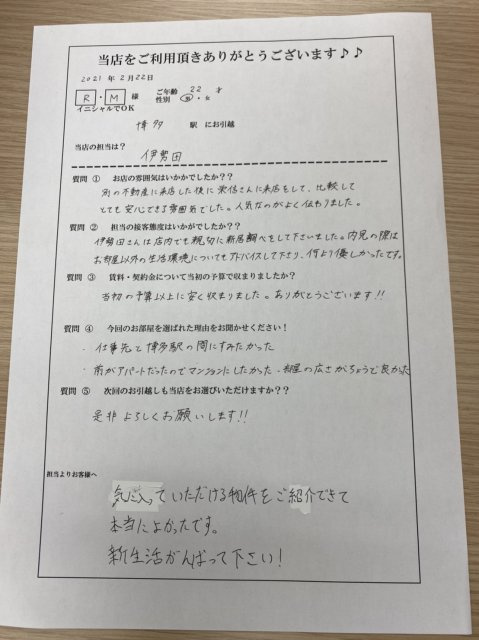 当店をご利用頂きありがとうございます♪♪
2021 年 2 月 22日
R ・ M 様 ご年齢 22 才
イニシャルでOK 性別 男 ・ 女
博多 駅 にお引越
当店の担当は?
伊勢田
質問 ① お店の雰囲気はいかかでしたか??
別の不動産に来店した後に栄信さんに来店をして、比較して
とても安心できる雰囲気でした。人気なのがよく伝わりました。
質問 ② 担当の接客態度はいかがでしたか??
伊勢田さんは店内でも親切に新居調べをして下さいました。内見の際は
お部屋以外の生活環境についてもアドバイスして下さり、何より優しかったです。
質問 ③ 賃料・契約金について当初の予算で収まりましたか?
当初の予算以上に安く収まりました。ありがとうございます!!
質問 ④ 今回のお部屋を選ばれた理由をお聞かせください!
・仕事先と博多駅の間にすみたかった
・前がアパートだったのでマンションにしたかった ・部屋の広さがちょうで良かった
質問 ⑤ 次回のお引越しも当店をお選びいただけますか??
是非よろしくお願いします!!
担当よりお客様へ
気に入っていただける物件をご紹介できて
本当によかったです。
新生活がんばって下さい!